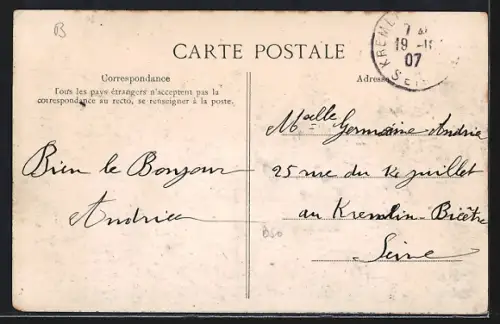 B
CARTE POSTALE
Correspondance
Tous les pays étrangers n'acceptent pas la
correspondance au recto, se renseigner à la poste.
Bien le Bonjour
Andrieu
KREML
7
19
07
SE
Adress
Melle Germaine Andrieu
25 rue du 14 juillet
au Kremlin-Bicêtre
Seine
B50